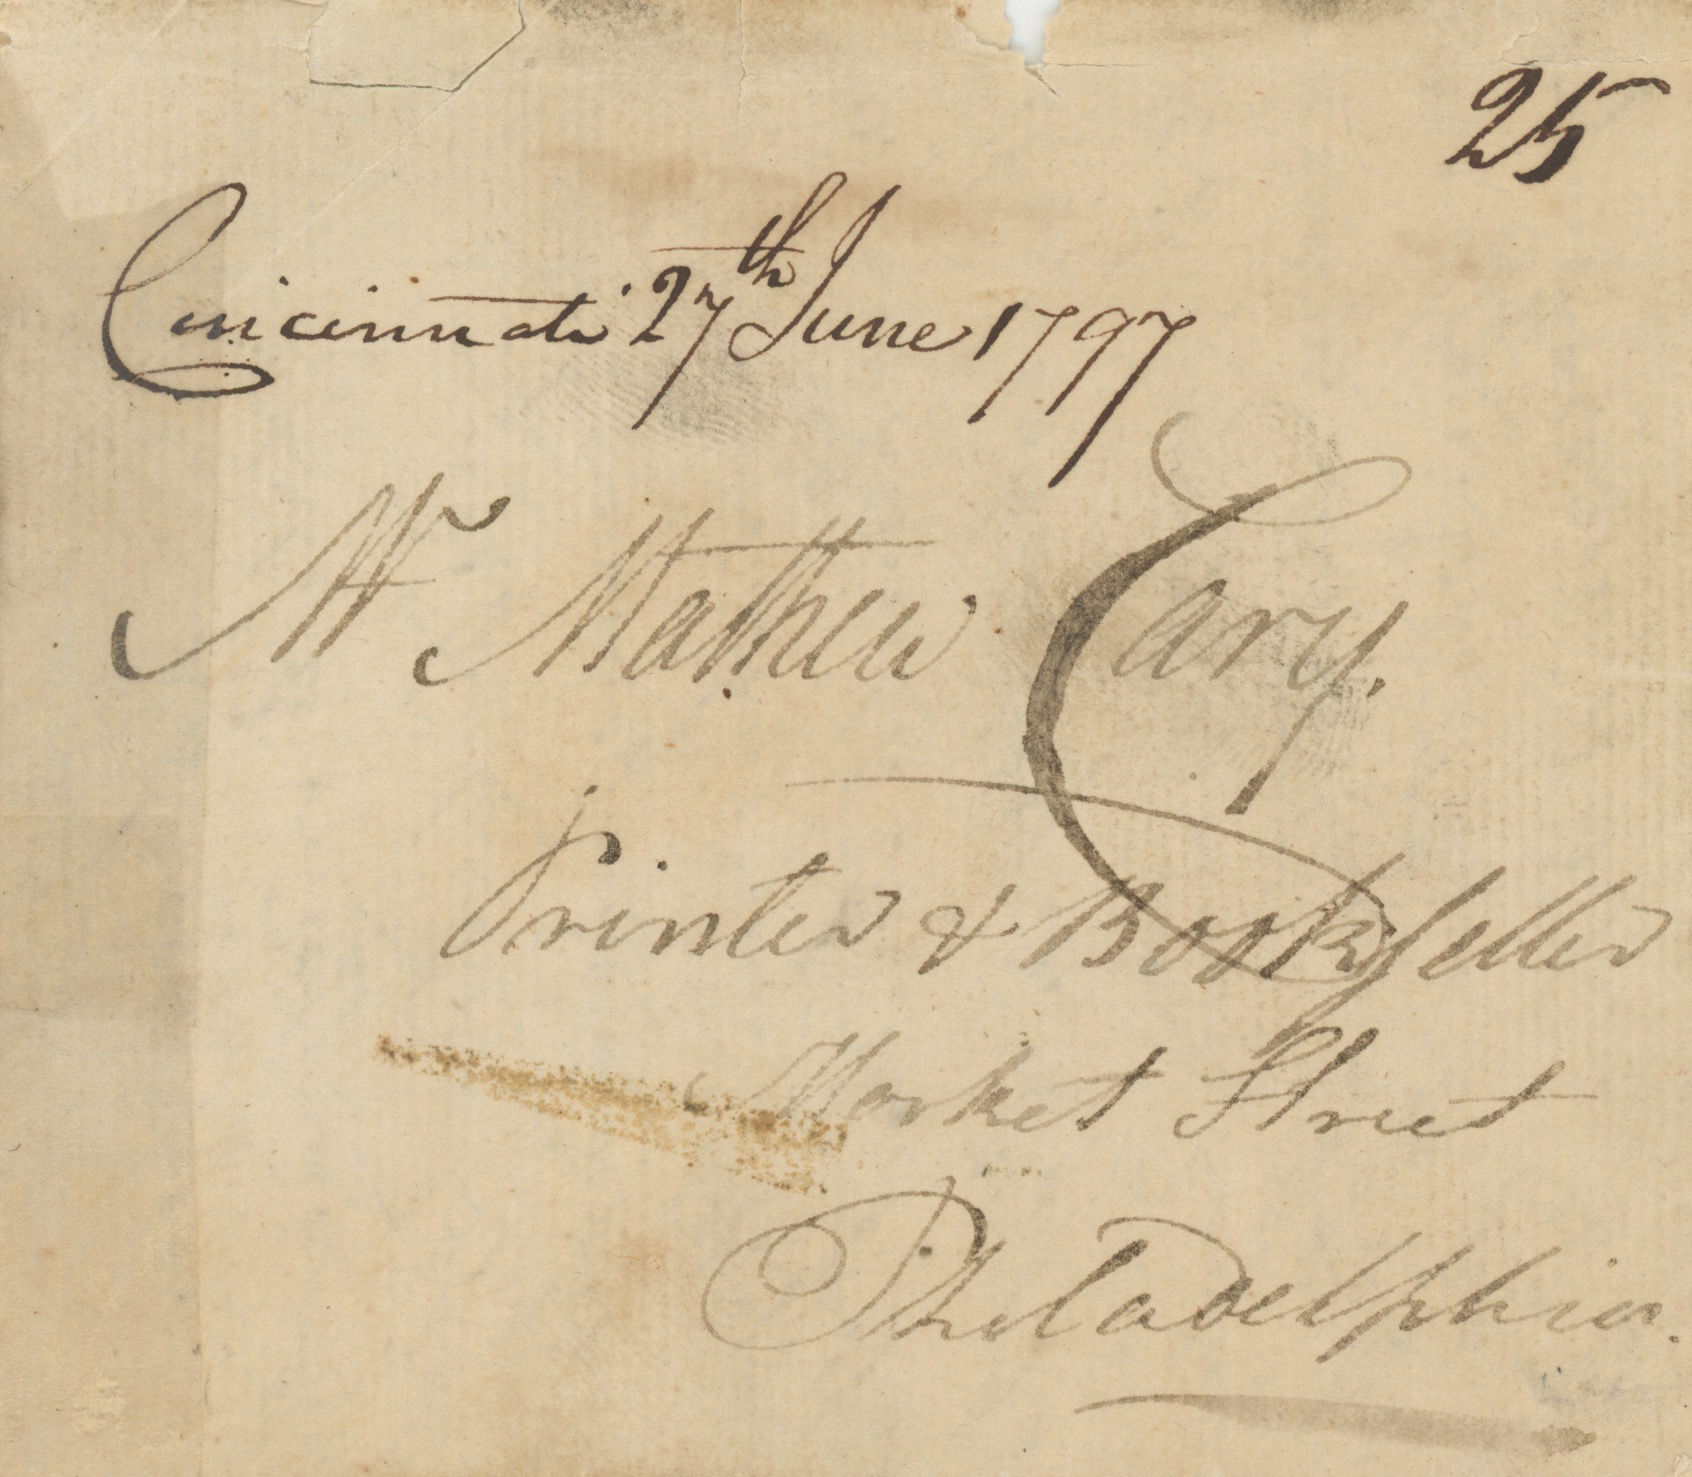 25
Cincinnati 27th June 1797
Mr Mathew Cary.
Printer & Bookseller
Market Street
Philadelphia.